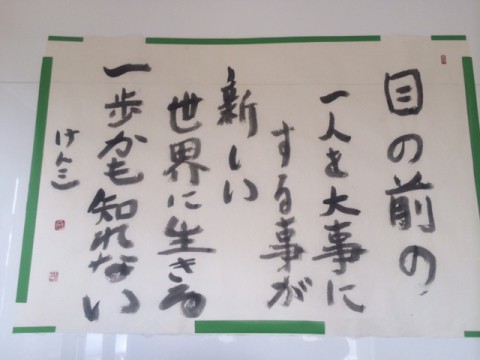 目の前の
一人を大事に
する事が
新しい
世界に生きる
一歩かも知れない
けん三